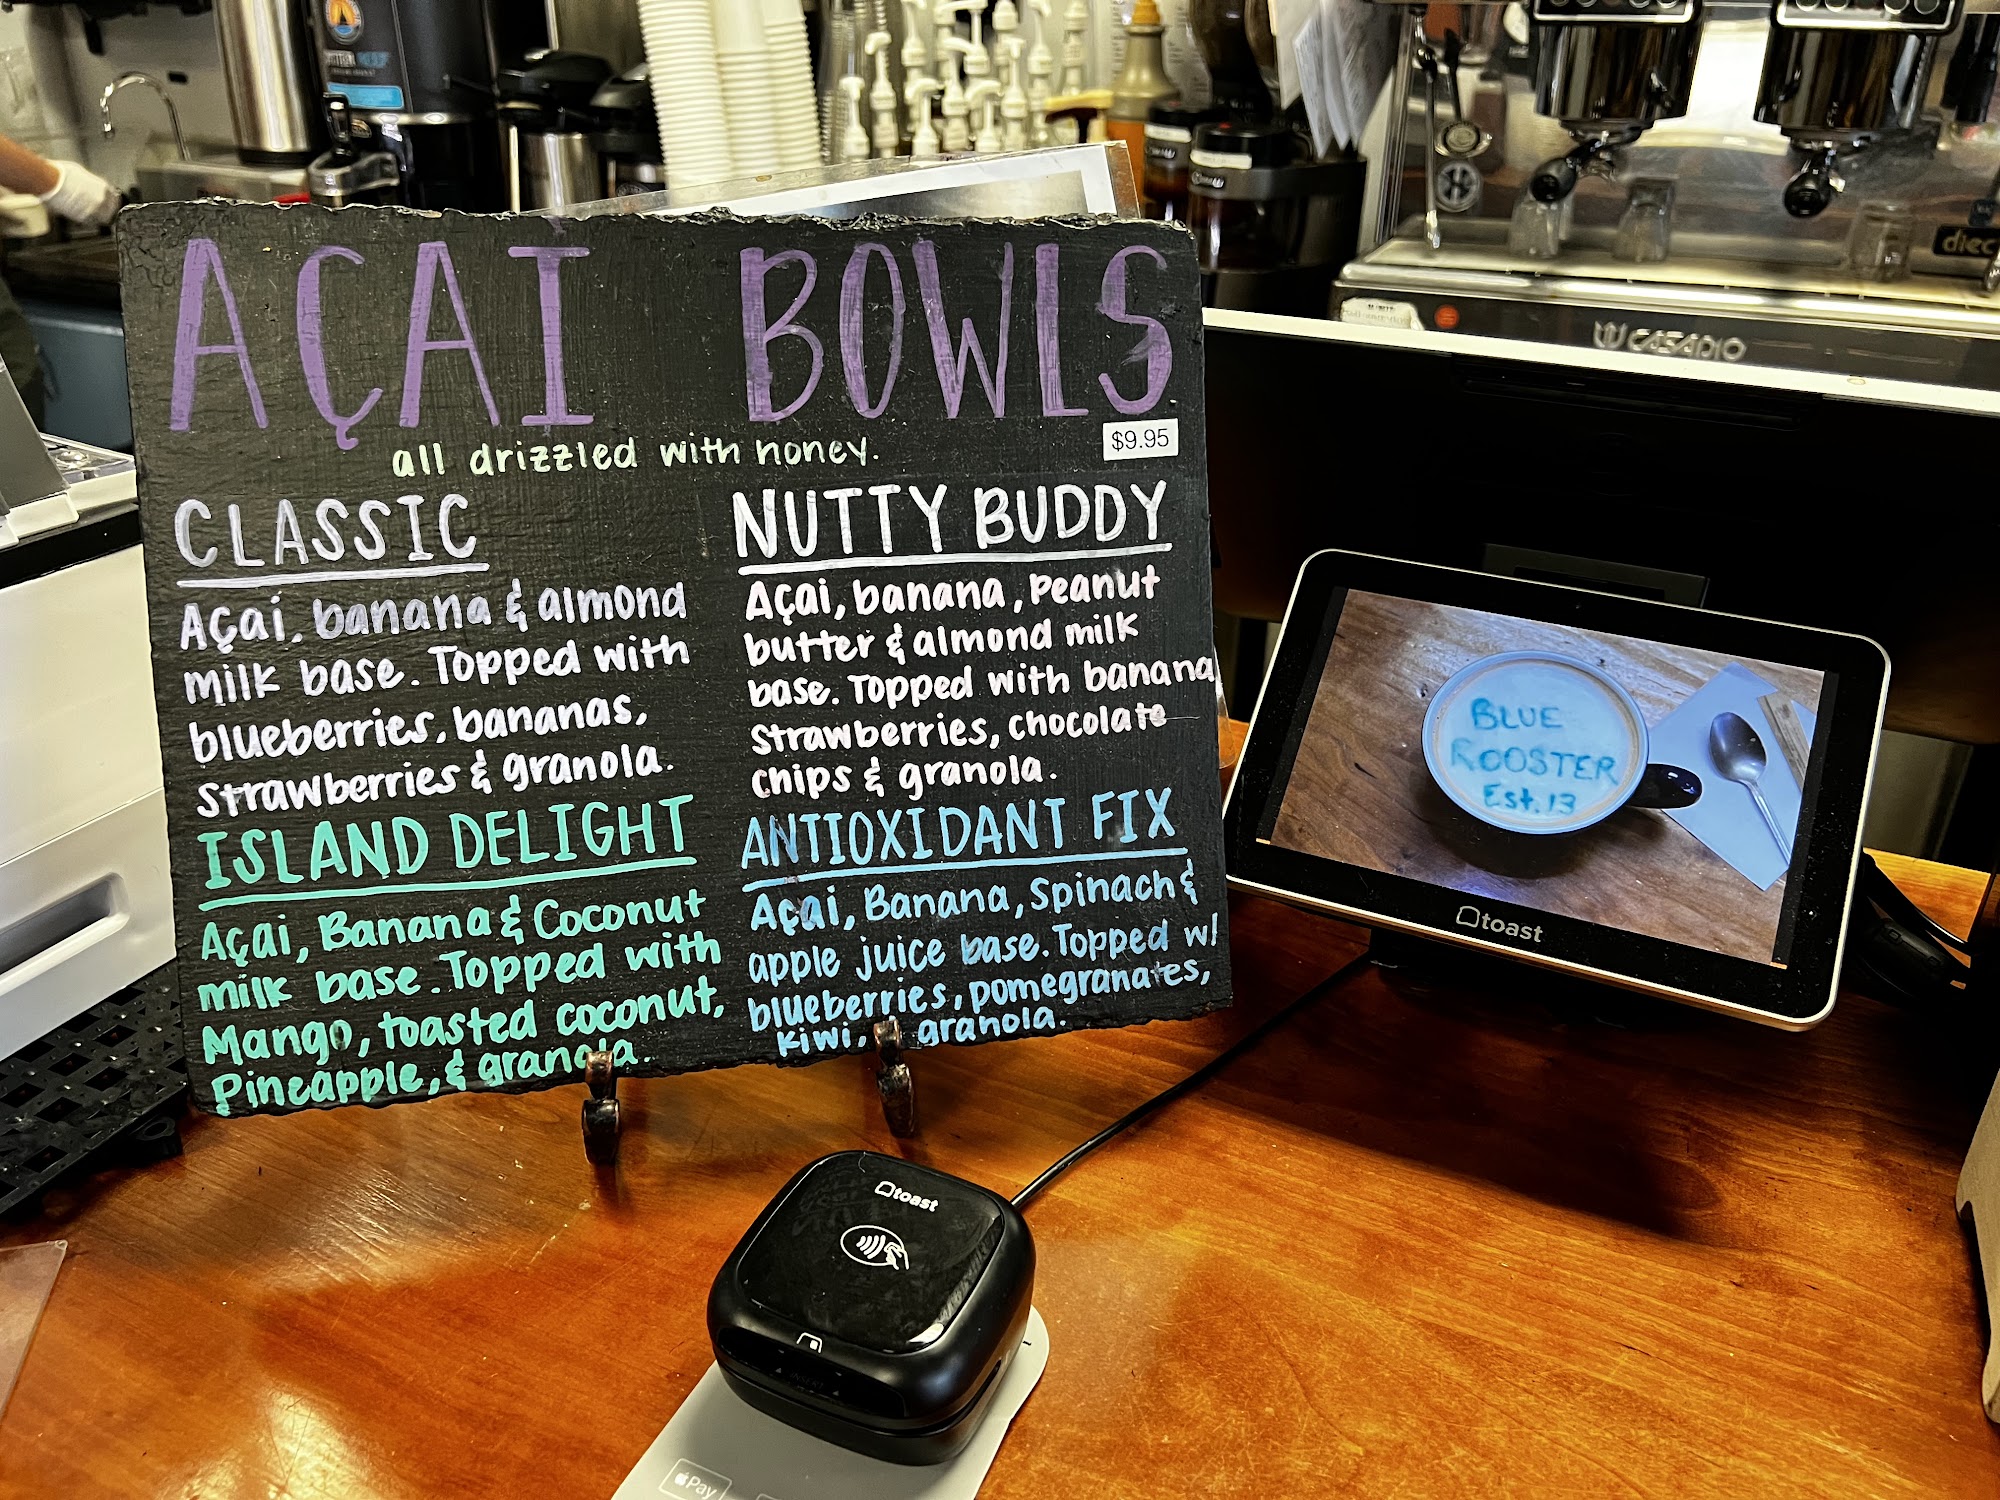 AÇAI BOWLS
all drizzled with honey.
$9.95
CLASSIC
Açai, banana & almond
milk base. Topped with
blueberries, bananas,
strawberries & granola.
NUTTY BUDDY
Açai, banana, peanut
butter & almond milk
base. Topped with banana
strawberries, chocolate
chips & granola.
ISLAND DELIGHT
Açai, Banana & Coconut
milk base. Topped with
Mango, toasted coconut,
Pineapple, & granola.
ANTIOXIDANT FIX
Açai, Banana, Spinach &
apple juice base. Topped w/
blueberries, pomegranates,
kiwi, & granola.
CASADIO
BLUE
ROOSTER
Est. 13
toast
toast
Pay